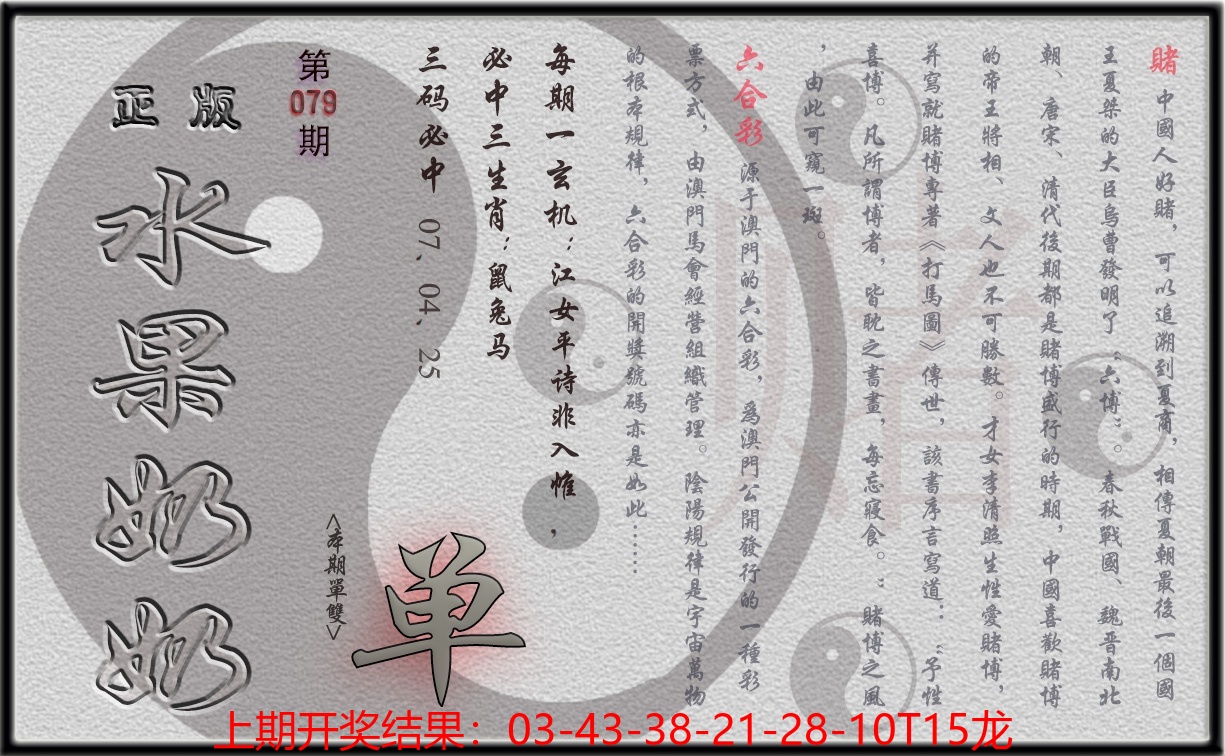 賭 中國人好賭，可以追溯到夏商，相傳夏朝最後一個國
王夏桀的大臣烏曹發明了“六博”。春秋戰國、魏晉南北
朝、唐宋、清代後期都是賭博盛行的時期，中國喜歡賭博
的帝王將相、文人也不可勝數。才女李清照生性愛賭博，
并寫就賭博專著《打馬圖》傳世，該書序言寫道：“予性
喜博。凡所謂博者，皆耽之書畫，每忘寢食。”賭博之風
，由此可窺一斑。
六合彩 源于澳門的六合彩，爲澳門公開發行的一種彩
票方式，由澳門馬會經營組織管理。陰陽規律是宇宙萬物
的根本規律，六合彩的開獎號碼亦是如此……
每期一玄机：江女平诗非入帷，
必中三生肖：鼠兔马
三码必中 07. 04. 25
第
079
期
正版
水果奶奶
<本期單雙>
单
賭
上期开奖结果：03-43-38-21-28-10T15龙